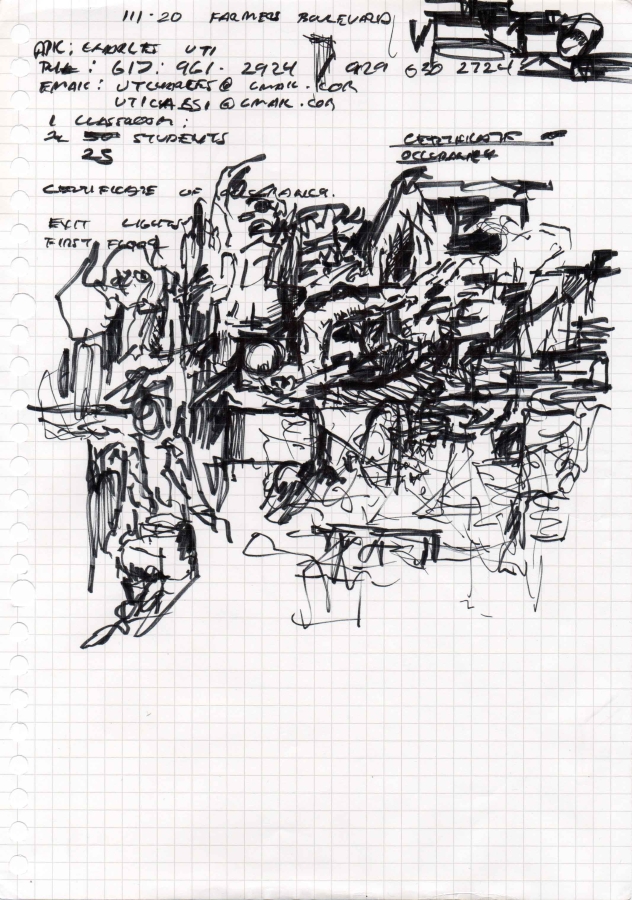 111-20 FARMERS BOULEVARD
CHARLES UTI
617: 961. 2924 929 630 2724
EMAIL: UTCHARLES@GMAIL.COM
@GMAIL.COM
1 CLASSROOM:
STUDENTS
25
CERTIFICATE
OCCUPANCY
CERTIFICATE OF OCCUPANCY.
EXIT LIGHTS
FIRST FLOOR